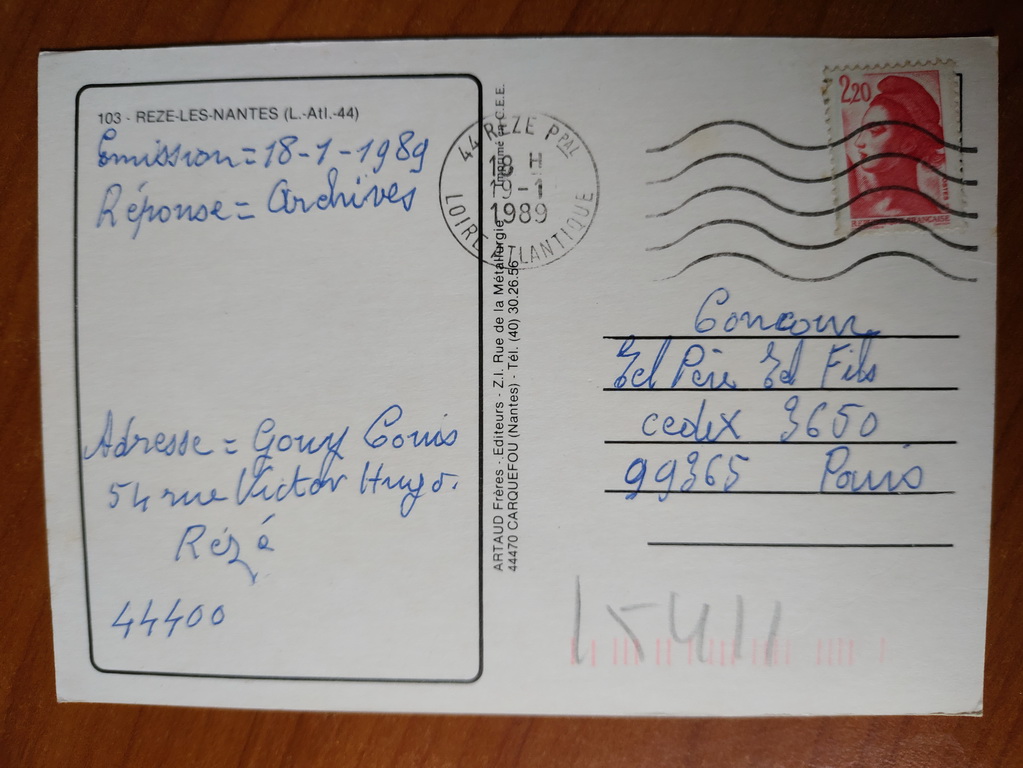 103 - REZE-LES-NANTES (L.-Atl.-44)
Emission = 18-1-1989
Réponse = Archives
Adresse = Gouy Couis
54 rue Victor Hugo.
Rézé
44400
ARTAUD Frères - Editeurs - Z.I. Rue de la Métallurgie - Imprimé en C.E.E.
44470 CARQUEFOU (Nantes) - Tél. (40) 30.26.56
44 REZE PPAL
18 H
19 - 1
1989
LOIRE ATLANTIQUE
2,20
FRANCAISE
Concour
Tel Père Tel Fils
cedex 3650
99365 Paris
15411